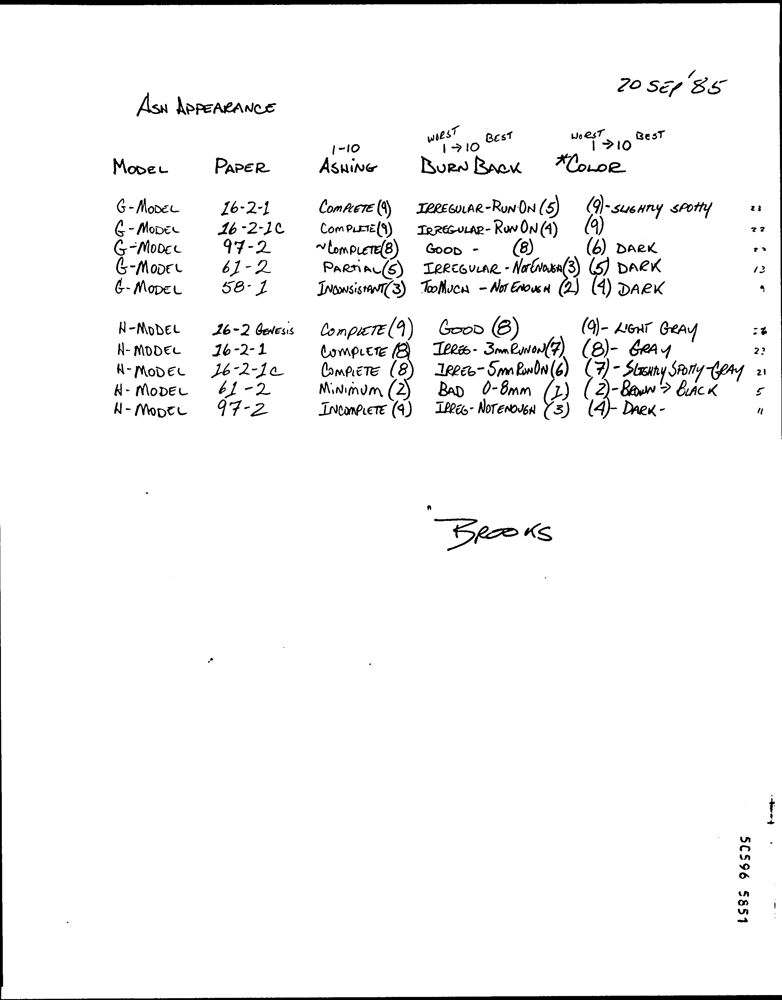 20 SEP '85
ASH APPEARANCE
1-10 WORST 1→10 BEST WORST 1→10 BEST
MODEL PAPER ASHING BURN BACK *COLOR
G-MODEL 16-2-1 COMPLETE (9) IRREGULAR-RUN ON (5) (9)-SLIGHTLY SPOTTY 23
G-MODEL 16-2-1C COMPLETE (9) IRREGULAR-RUN ON (4) (9) 22
G-MODEL 97-2 ~COMPLETE (8) GOOD - (8) (6) DARK
G-MODEL 61-2 PARTIAL (5) IRREGULAR-NOT ENOUGH (3) (5) DARK 13
G-MODEL 58-1 INCONSISTANT (3) TOO MUCH - NOT ENOUGH (2) (4) DARK 9
H-MODEL 16-2 GENESIS COMPLETE (9) GOOD (8) (9)-LIGHT GRAY
H-MODEL 16-2-1 COMPLETE (8) IRREG-3mm RUN ON (7) (8)-GRAY 23
H-MODEL 16-2-1C COMPLETE (8) IRREG-5mm RUN ON (6) (7)-SLIGHTLY SPOTTY-GRAY 21
H-MODEL 61-2 MINIMUM (2) BAD 0-8mm (1) (2)-BROWN→BLACK 5
H-MODEL 97-2 INCOMPLETE (4) IRREG-NOT ENOUGH (3) (4)-DARK- 11
BROOKS
50596 5851